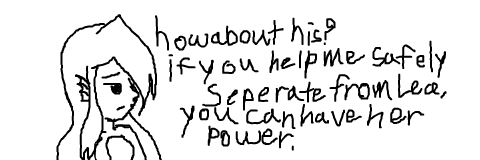 how about his?
if you help me safely
seperate from Lea,
you can have her
power.